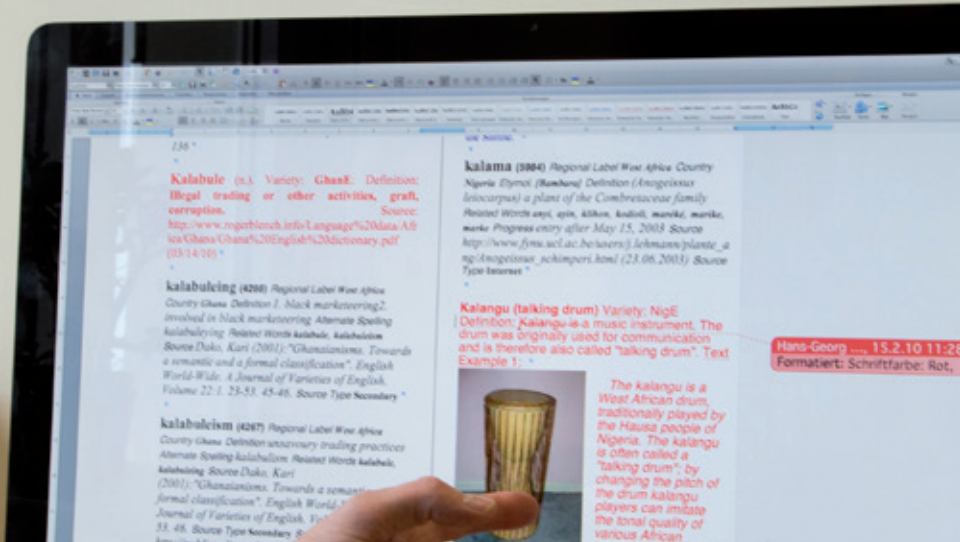 136
Kalabule (n.). Variety: GhanE: Definition:
Illegal trading or other activities, graft,
corruption. Source:
http://www.rogerblench.info/Language%20data/Afr
ica/Ghana/Ghana%20English%20dictionary.pdf
(03/14/10)
kalabuleing (4266) Regional Label West Africa
Country Ghana Definition 1. black marketeering2.
involved in black marketeering Alternate Spelling
kalabuleying Related Words kalabule, kalabuleism
Source Dako, Kari (2001):"Ghanaianisms. Towards
a semantic and a formal classification". English
World-Wide. A Journal of Varieties of English.
Volume 22:1. 23-53. 45-46. Source Type Secondary
kalabuleism (4267) Regional Label West Africa
Country Ghana Definition unsavoury trading practices
Alternate Spelling kalabulism Related Words kalabule,
kalabuleing Source Dako, Kari
(2001):"Ghanaianisms. Towards a semantic
formal classification". English World-
Journal of Varieties of English.
53. 46. Source Type Secondary
kalama (5004) Regional Label West Africa Country
Nigeria Etymol. (Bambara) Definition (Anogeissus
leiocarpus) a plant of the Combretaceae family
Related Words anyi, ayin, klihon, kodioli, maréké, marike,
marke Progress entry after May 15, 2003 Source
http://www.fynu.ucl.ac.be/users/j.lehmann/plante_a
ng/Anogeissus_schimperi.html (23.06.2003) Source
Type Internet
Kalangu (talking drum) Variety: NigE
Definition: Kalangu is a music instrument. The
drum was originally used for communication
and is therefore also called "talking drum". Text
Example 1:
The kalangu is a
West African drum,
traditionally played by
the Hausa people of
Nigeria. The kalangu
is often called a
"talking drum"; by
changing the pitch of
the drum kalangu
players can imitate
the tonal quality of
various African
Hans-Georg ..., 15.2.10 11:28
Formatiert: Schriftfarbe: Rot,